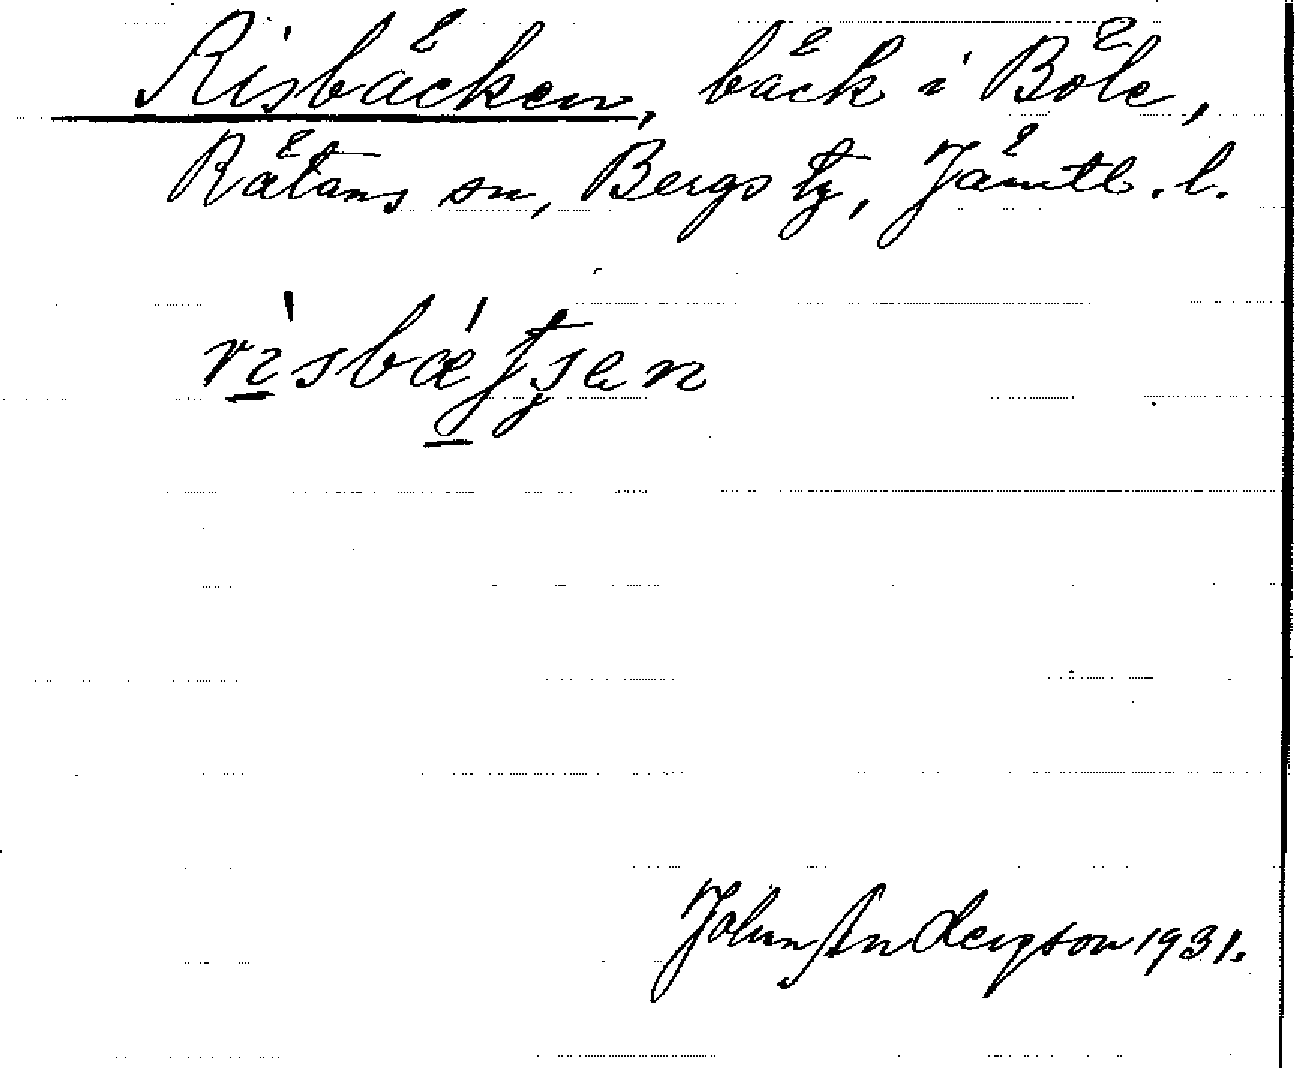 Risbäcken, bäck i Böle,
Rätans sn, Bergs tg, Jämtl. l.
rìsbǽʃʃen
John Andersson 1931.